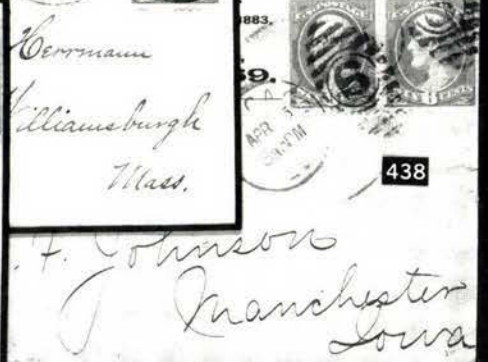 Herrmann
Williamsburgh
Mass.
1883.
59.
APR
PM
CENTS
438
F. Johnson
Manchester
Iowa